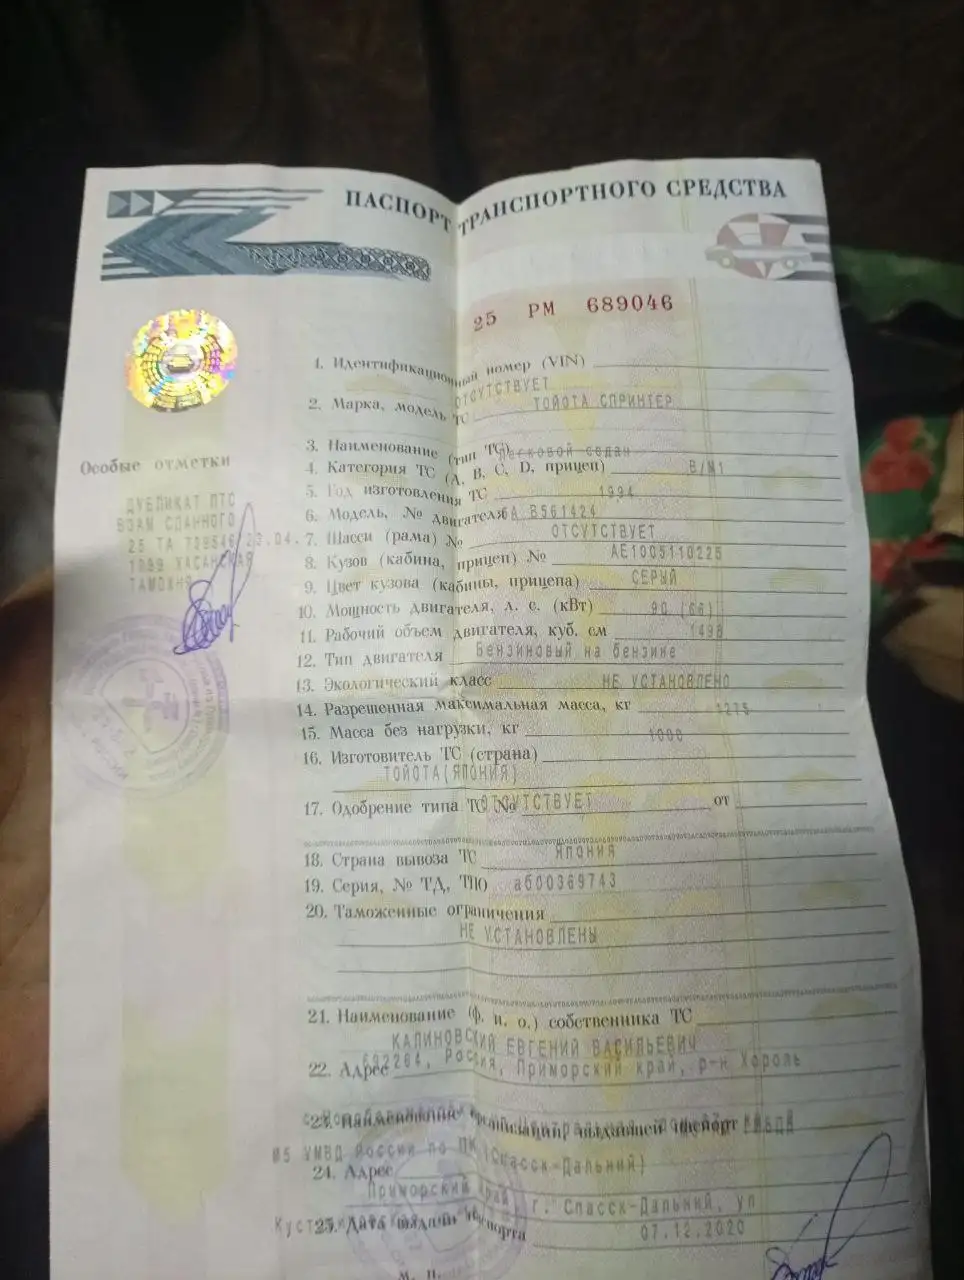 ПАСПОРТ ТРАНСПОРТНОГО СРЕДСТВА
25 РМ 689046
1. Идентификационный номер (VIN)
ОТСУТСТВУЕТ
2. Марка, модель ТС ТОЙОТА СПРИНТЕР
3. Наименование (тип ТС) Легковой седан
4. Категория ТС (А, В, С, D, прицеп) В/М1
5. Год изготовления ТС 1994
6. Модель, № двигателя 5А В561424
7. Шасси (рама) № ОТСУТСТВУЕТ
8. Кузов (кабина, прицеп) № АЕ1005110225
9. Цвет кузова (кабины, прицепа) СЕРЫЙ
10. Мощность двигателя, л. с. (кВт) 90 (66)
11. Рабочий объем двигателя, куб. см 1498
12. Тип двигателя Бензиновый на бензине
13. Экологический класс НЕ УСТАНОВЛЕНО
14. Разрешенная максимальная масса, кг 1275
15. Масса без нагрузки, кг 1000
16. Изготовитель ТС (страна)
ТОЙОТА(ЯПОНИЯ)
17. Одобрение типа ТС № ОТСУТСТВУЕТ от
18. Страна вывоза ТС ЯПОНИЯ
19. Серия, № ТД, ТПО аб00369743
20. Таможенные ограничения
НЕ УСТАНОВЛЕНЫ
21. Наименование (ф. и. о.) собственника ТС
КАЛИНОВСКИЙ ЕВГЕНИЙ ВАСИЛЬЕВИЧ
22. Адрес 692264, Россия, Приморский край, р-н Хороль
23. Наименование организации, выдавшей паспорт
УМВД России по ПК (Спасск-Дальний)
24. Адрес
Приморский край, г. Спасск-Дальний, ул
25. Дата выдачи паспорта 07.12.2020
М. П.
Особые отметки
ДУБЛИКАТ ПТС
ВЗАМ СДАННОГО
25 ТА 23.04.
1999 ХАСАНСКАЯ
ТАМОЖНЯ